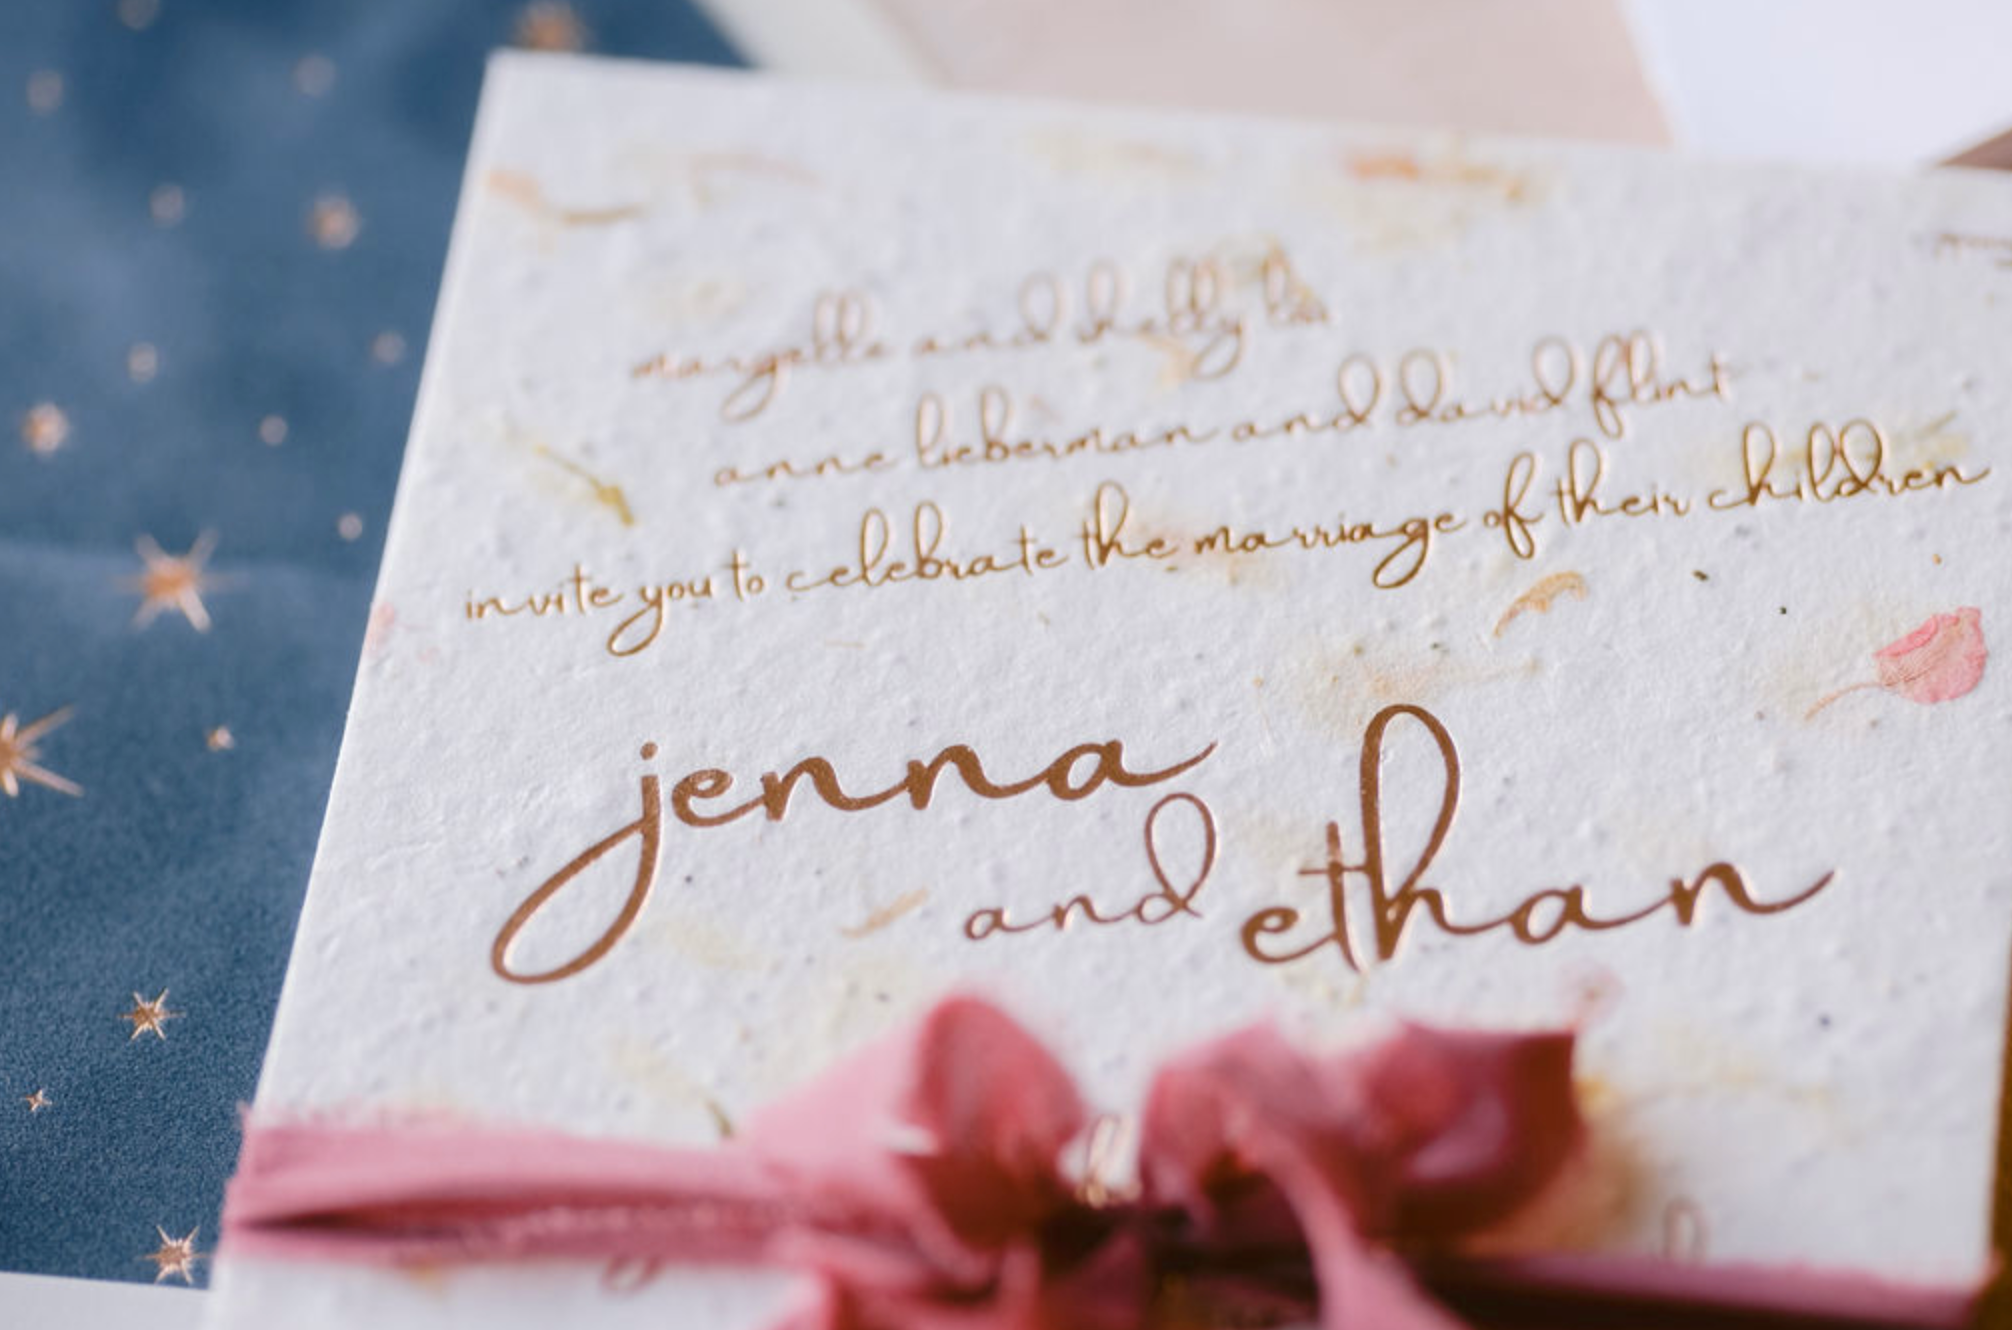 and
anne lieberman and david flint
invite you to celebrate the marriage of their children
jenna
and ethan